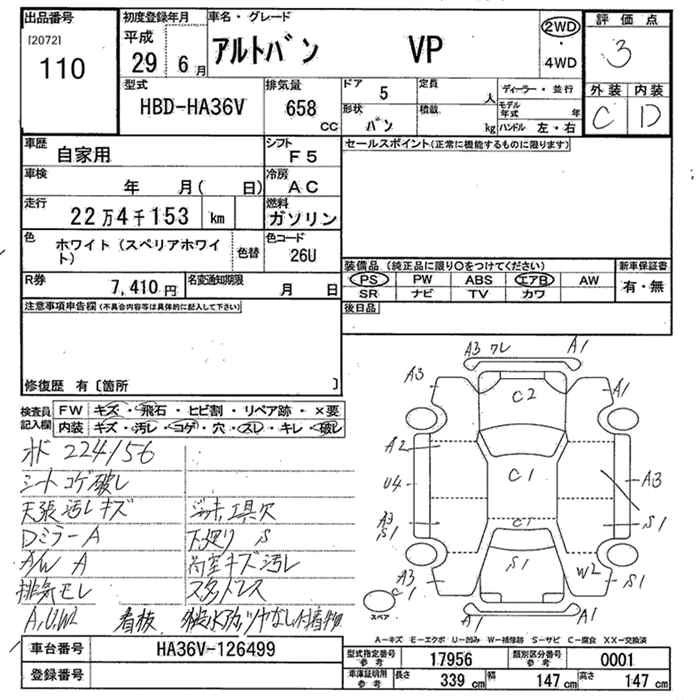 出品番号
[2072]
110
初度登録年月
平成
29 6 月
車名・グレード
アルトバン VP
2WD
・
4WD
評価点
3
外装 内装
C D
型式
HBD-HA36V
排気量
658
CC
ドア
5
形状
バン
定員
人
積載
kg
ディーラー・並行
モデル年式 年
ハンドル 左・右
車歴
自家用
シフト
F5
車検
年 月( 日)
冷房
AC
走行
22万4千153 km
燃料
ガソリン
色
ホワイト(スペリアホワイト)
色替
色コード
26U
R券
7,410 円
名変通知期限
月 日
セールスポイント(正常に機能するものに限ります)
装備品 (純正品に限り○をつけてください)
PS PW ABS エアB AW
SR ナビ TV カワ
新車保証書
有・無
後日品
注意事項申告欄(不具合内容等は具体的に記入して下さい)
修復歴 有〔箇所 〕
検査員
記入欄
FW キズ・飛石・ヒビ割・リペア跡・×要
内装 キズ・汚レ・コゲ・穴・スレ・キレ・破レ
224156
シートコゲ破レ
天張汚レキズ ジャッキ工具欠
Dミラー A 下廻り S
A/W A 荷室キズ汚レ
排気モレ スタッドレス
A,U,W2 看板
A3 ワレ A1
A3 A1
C2
A2
U4 C1 A3
A3
S1 C1 S1
S1 W2
A3 S1
スペア
A1 A1
A-キズ E-エクボ U-凹み W-補修跡 S-サビ C-腐食 XX-交換済
車台番号 HA36V-126499
登録番号
型式指定番号
参考
17956
類別区分番号
参考
0001
車庫証明用
参考
長さ 339 cm 幅 147 cm 高さ 147 cm